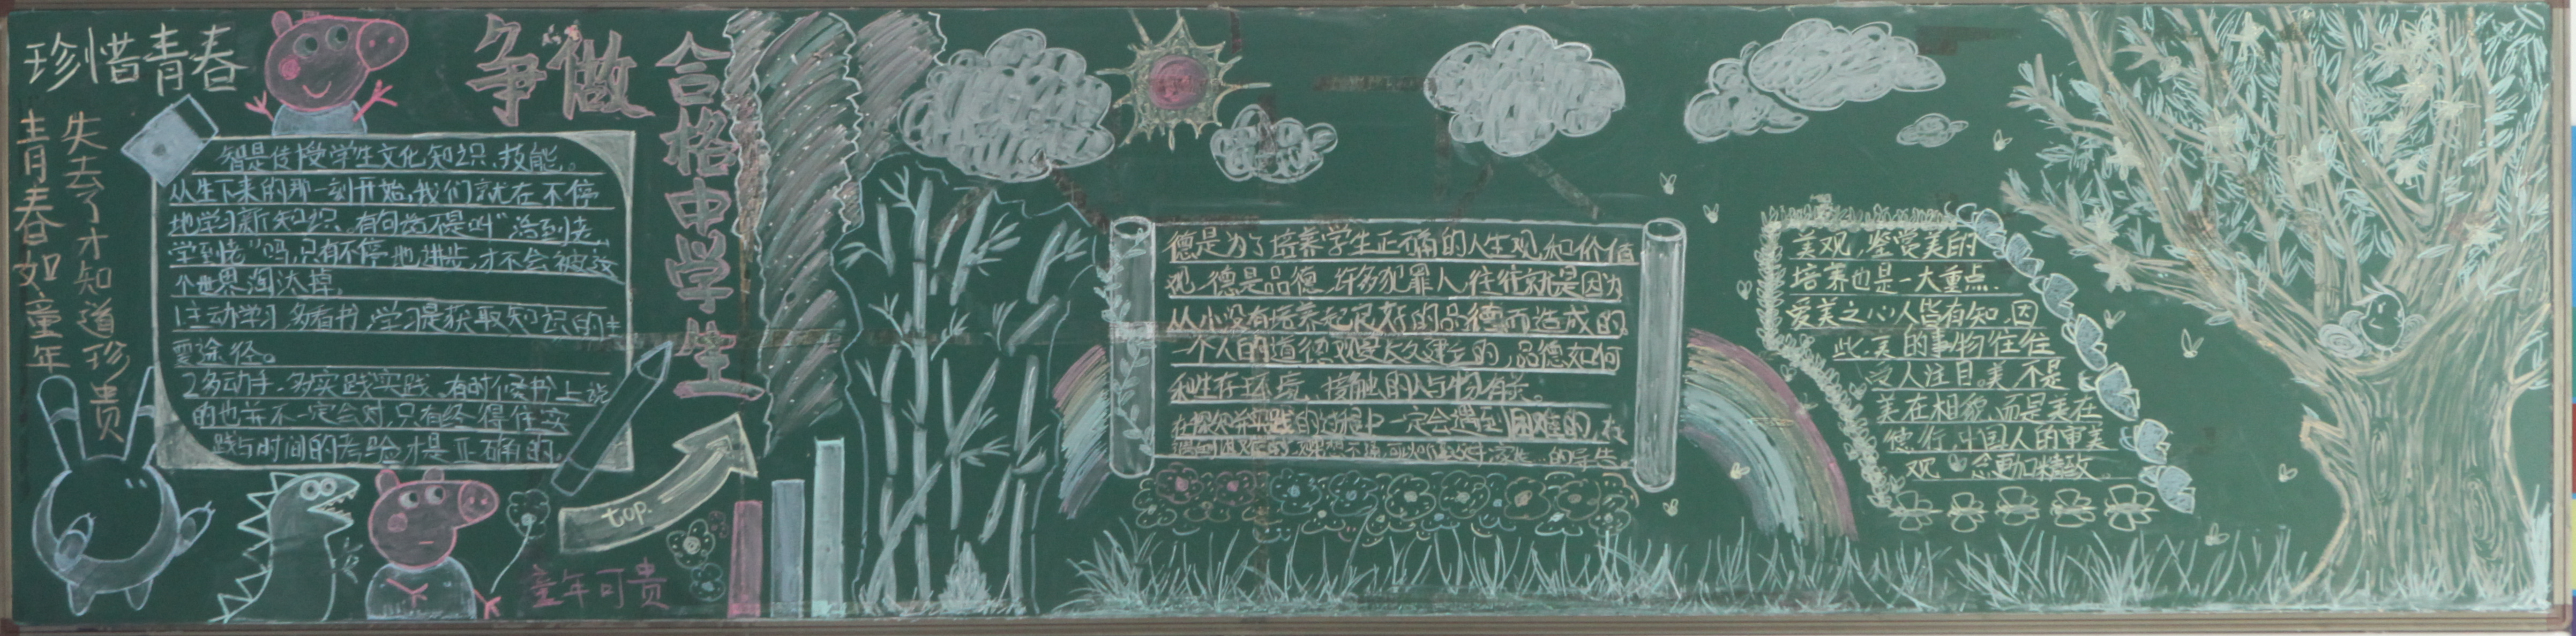 珍惜青春
失去了才知道珍贵
青春如童年
智是传授学生文化知识、技能。
从生下来的那一刻开始,我们就在不停
地学习新知识。有句话不是叫“活到老,
学到老”吗,只有不停地进步,才不会被这
个世界淘汰掉。
1主动学习,多看书,学习是获取知识的主
要途径。
2多动手、多实践实践。有时候书上说
的也并不一定会对,只有经得住实
践与时间的考验才是正确的。
童年可贵
top.
争做
合格中学生
德是为了培养学生正确的人生观和价值
观,德是品德,许多犯罪人往往就是因为
从小没有培养起良好的品德而造成的
一个人的道德观是长久建立的,品德如何
和生存环境、接触的人与物有关。
的过程中一定会遇到困难的,在
美观,鉴赏美的
培养也是一大重点.
爱美之心人皆有知,因
此,美的事物往往
受人注目。美不是
美在相貌,而是美在
德行,中国人的审美
观 会更加精致.